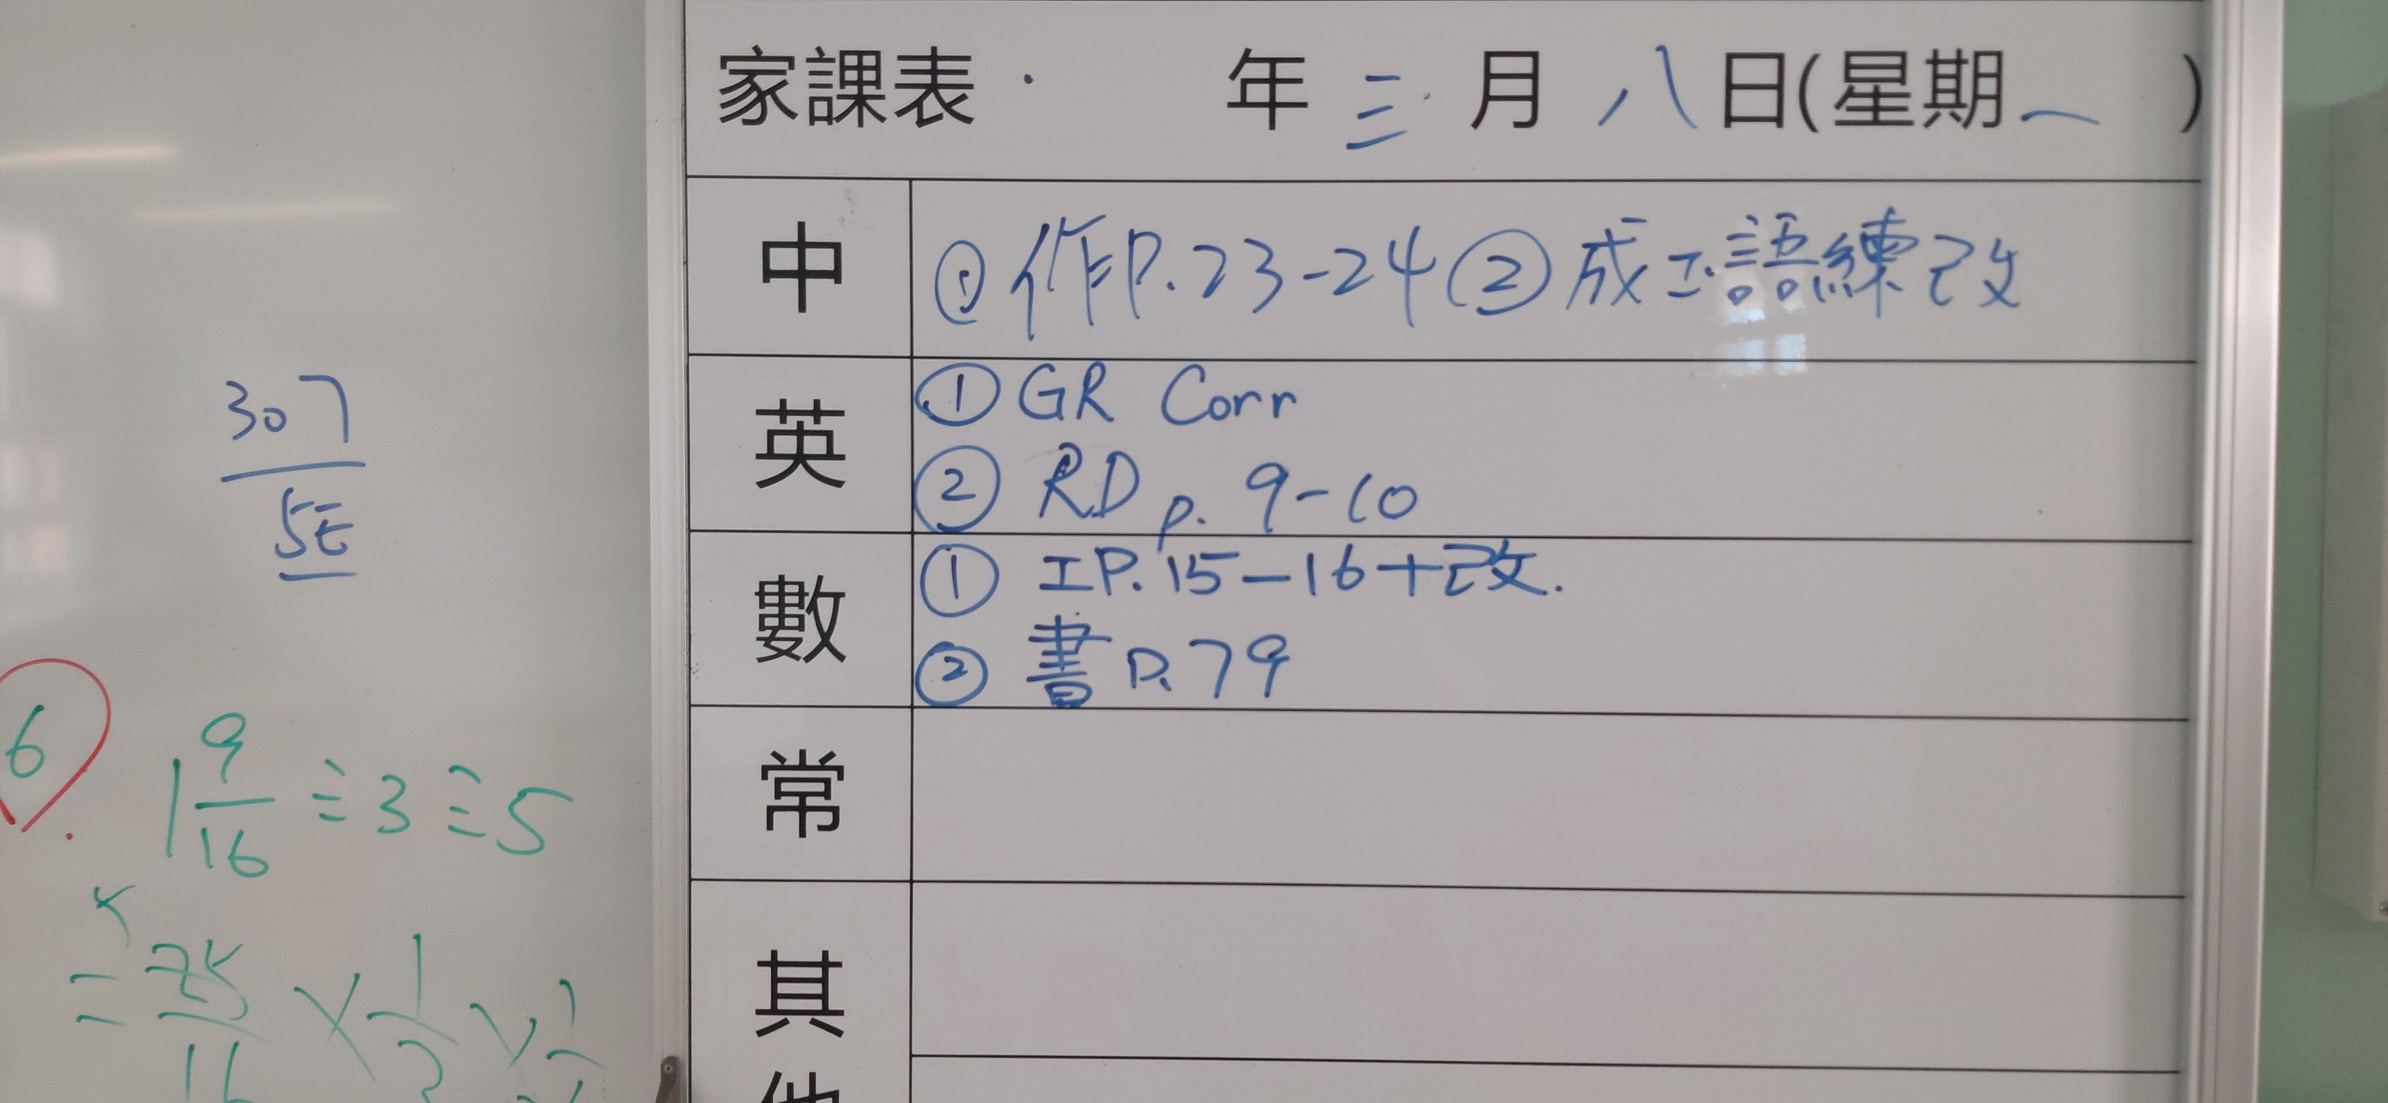 家課表 年 三 月 八 日(星期 一 )
中 ① 作P.23-24 ② 成工語練改
英 ① GR Corr
② RD p. 9-10
數 ① 工P.15-16+改.
② 書P.79
常
其他
307
5E
6. 1 9/16 ÷ 3 ÷ 5
= 25/16 × 1/3 ×